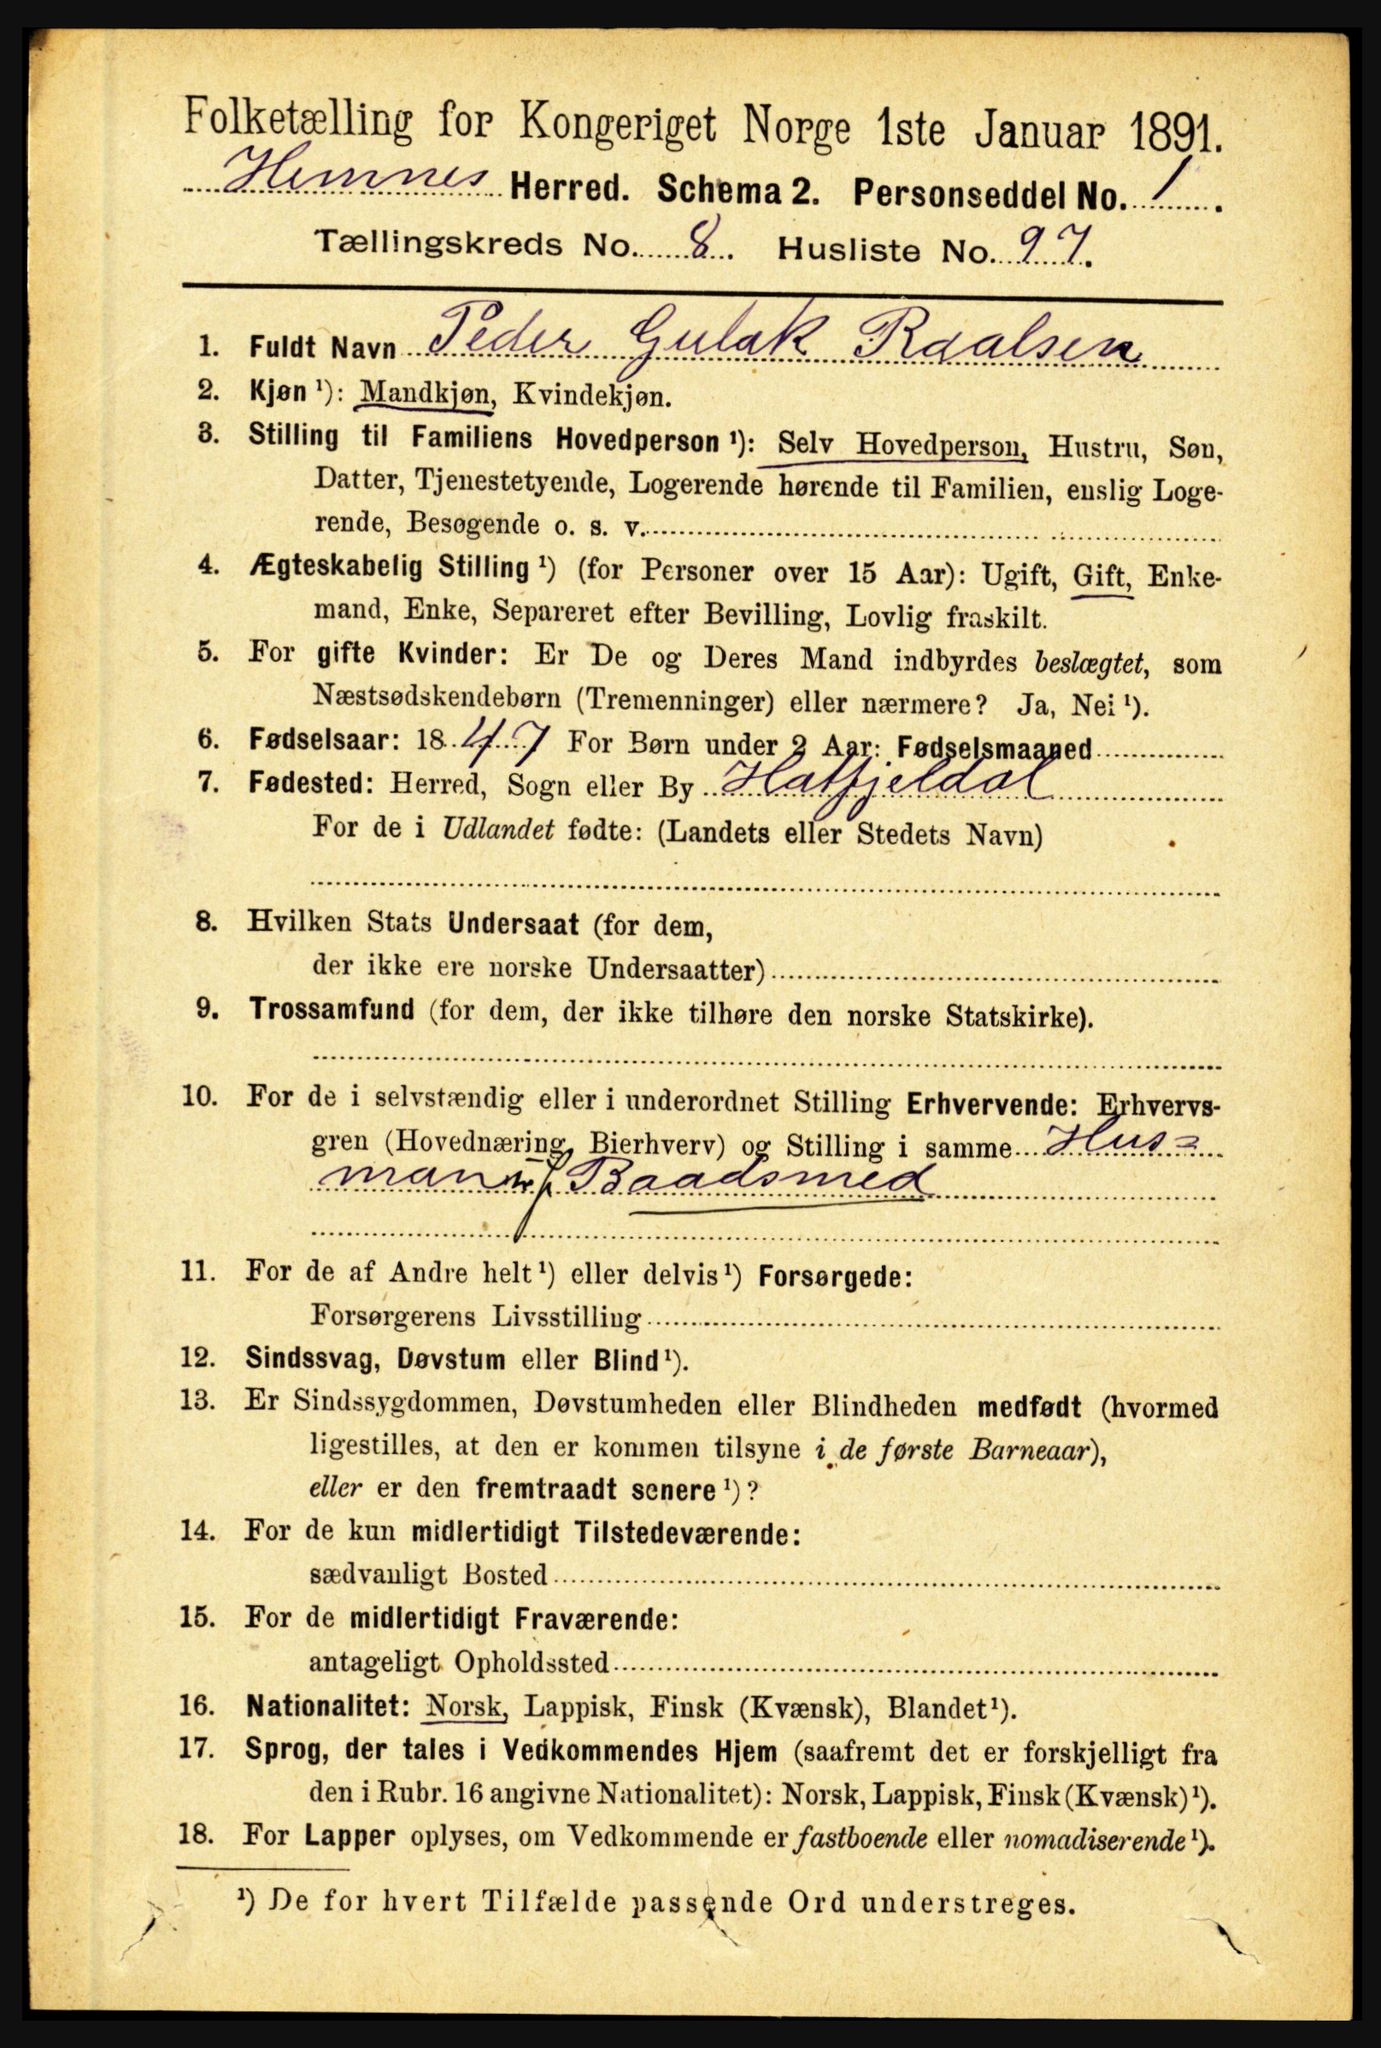 Folketælling for Kongeriget Norge 1ste Januar 1891.
Hemnes Herred. Schema 2. Personseddel No. 1.
Tællingskreds No. 8. Husliste No. 97.
1. Fuldt Navn Peder Gulak Raalsen
2. Kjøn ¹): Mandkjøn, Kvindekjøn.
3. Stilling til Familiens Hovedperson ¹): Selv Hovedperson, Hustru, Søn,
Datter, Tjenestetyende, Logerende hørende til Familien, enslig Loge-
rende, Besøgende o. s. v.
4. Ægteskabelig Stilling ¹) (for Personer over 15 Aar): Ugift, Gift, Enke-
mand, Enke, Separeret efter Bevilling, Lovlig fraskilt.
5. For gifte Kvinder: Er De og Deres Mand indbyrdes beslægtet, som
Næstsødskendebørn (Tremenninger) eller nærmere? Ja, Nei ¹).
6. Fødselsaar: 1847 For Børn under 2 Aar: Fødselsmaaned
7. Fødested: Herred, Sogn eller By Hatfjeldal
For de i Udlandet fødte: (Landets eller Stedets Navn)
8. Hvilken Stats Undersaat (for dem,
der ikke ere norske Undersaatter)
9. Trossamfund (for dem, der ikke tilhøre den norske Statskirke).
10. For de i selvstændig eller i underordnet Stilling Erhvervende: Erhvervs-
gren (Hovednæring, Bierhverv) og Stilling i samme Hus=
man Baadsmed
11. For de af Andre helt ¹) eller delvis ¹) Forsørgede:
Forsørgerens Livsstilling
12. Sindssvag, Døvstum eller Blind ¹).
13. Er Sindssygdommen, Døvstumheden eller Blindheden medfødt (hvormed
ligestilles, at den er kommen tilsyne i de første Barneaar),
eller er den fremtraadt senere ¹)?
14. For de kun midlertidigt Tilstedeværende:
sædvanligt Bosted
15. For de midlertidigt Fraværende:
antageligt Opholdssted
16. Nationalitet: Norsk, Lappisk, Finsk (Kvænsk), Blandet ¹).
17. Sprog, der tales i Vedkommendes Hjem (saafremt det er forskjelligt fra
den i Rubr. 16 angivne Nationalitet): Norsk, Lappisk, Finsk (Kvænsk) ¹).
18. For Lapper oplyses, om Vedkommende er fastboende eller nomadiserende ¹).
¹) De for hvert Tilfælde passende Ord understreges.